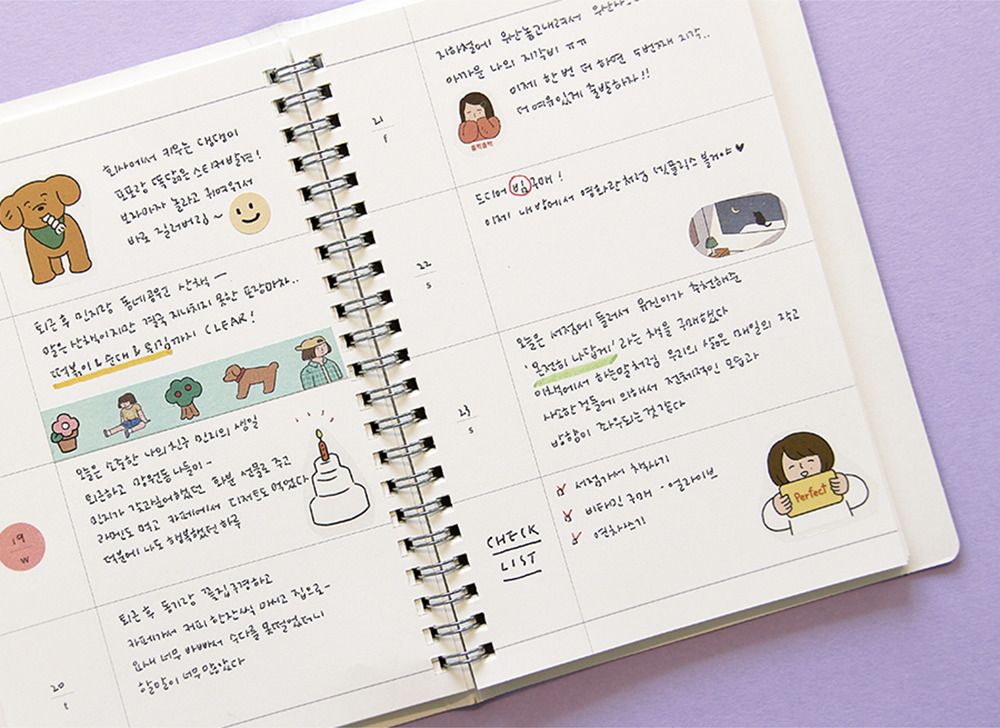 회사에서 키우는 댕댕이
뽀뽀랑 똑닮은 스티커발견!
보자마자 놀라고 귀여워서
바로 질러버림~
퇴근 후 민지랑 동네공원 산책 —
말은 산책이지만 결국 지나치지 못한 포장마차..
떡볶이 & 순대 & 튀김까지 CLEAR!
19
W
오늘은 소중한 나의친구 민지의 생일
퇴근하고 망원동 나들이 —
민지가 갖고싶어했던 화분 선물로 주고
라멘도 먹고 카페에서 디저트도 먹었다
덕분에 나도 행복했던 하루
20
t
퇴근 후 동기랑 꽃집구경하고
카페가서 커피 한잔씩 마시고 집으로 —
요새 너무 바빠서 수다를 못떨었더니
할말이 너무 많았다
21
f
지하철에 우산놓고내려서
아까운 나의 지각비 ㅠㅠ
이제 한 번 더 하면 5번째 지각..
더 여유있게 출발하자!!
훌쩍훌쩍
22
S
드디어 빔구매!
이제 내방에서 영화관처럼 넷플릭스 볼거야 ♥
23
S
오늘은 서점에 들러서 유진이가 추천해준
'온전히 나답게' 라는 책을 구매했다
이책에서 하는말처럼 우리의 삶은 매일의 작고
사소한 것들에 의해서 전체적인 모습과
방향이 좌우되는것같다
CHECK
LIST
서점가서 책사기
비타민 구매 - 올리브영
연차쓰기
Perfect